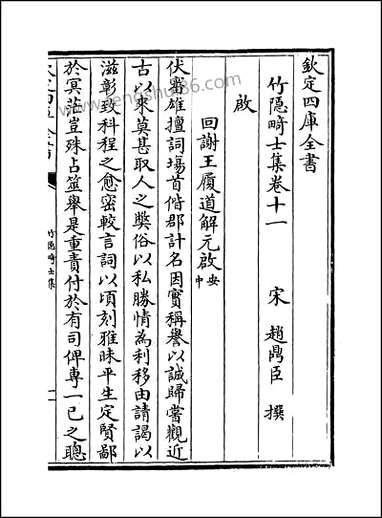 欽定四庫全書
竹隠畸士集卷十一
宋 趙鼎臣 撰
啟
回謝王履道解元啟 安中
伏審雄擅詞塲首偕郡計名因實稱譽以誠歸嘗觀近
古以來莫甚取人之獘俗以私勝情為利移由請謁以
滋彰致科程之愈密較言詞以頃刻雅昧平生定賢鄙
於冥茫豈殊占筮舉是重責付於有司俾専一己之聰
竹隠畸士集
一